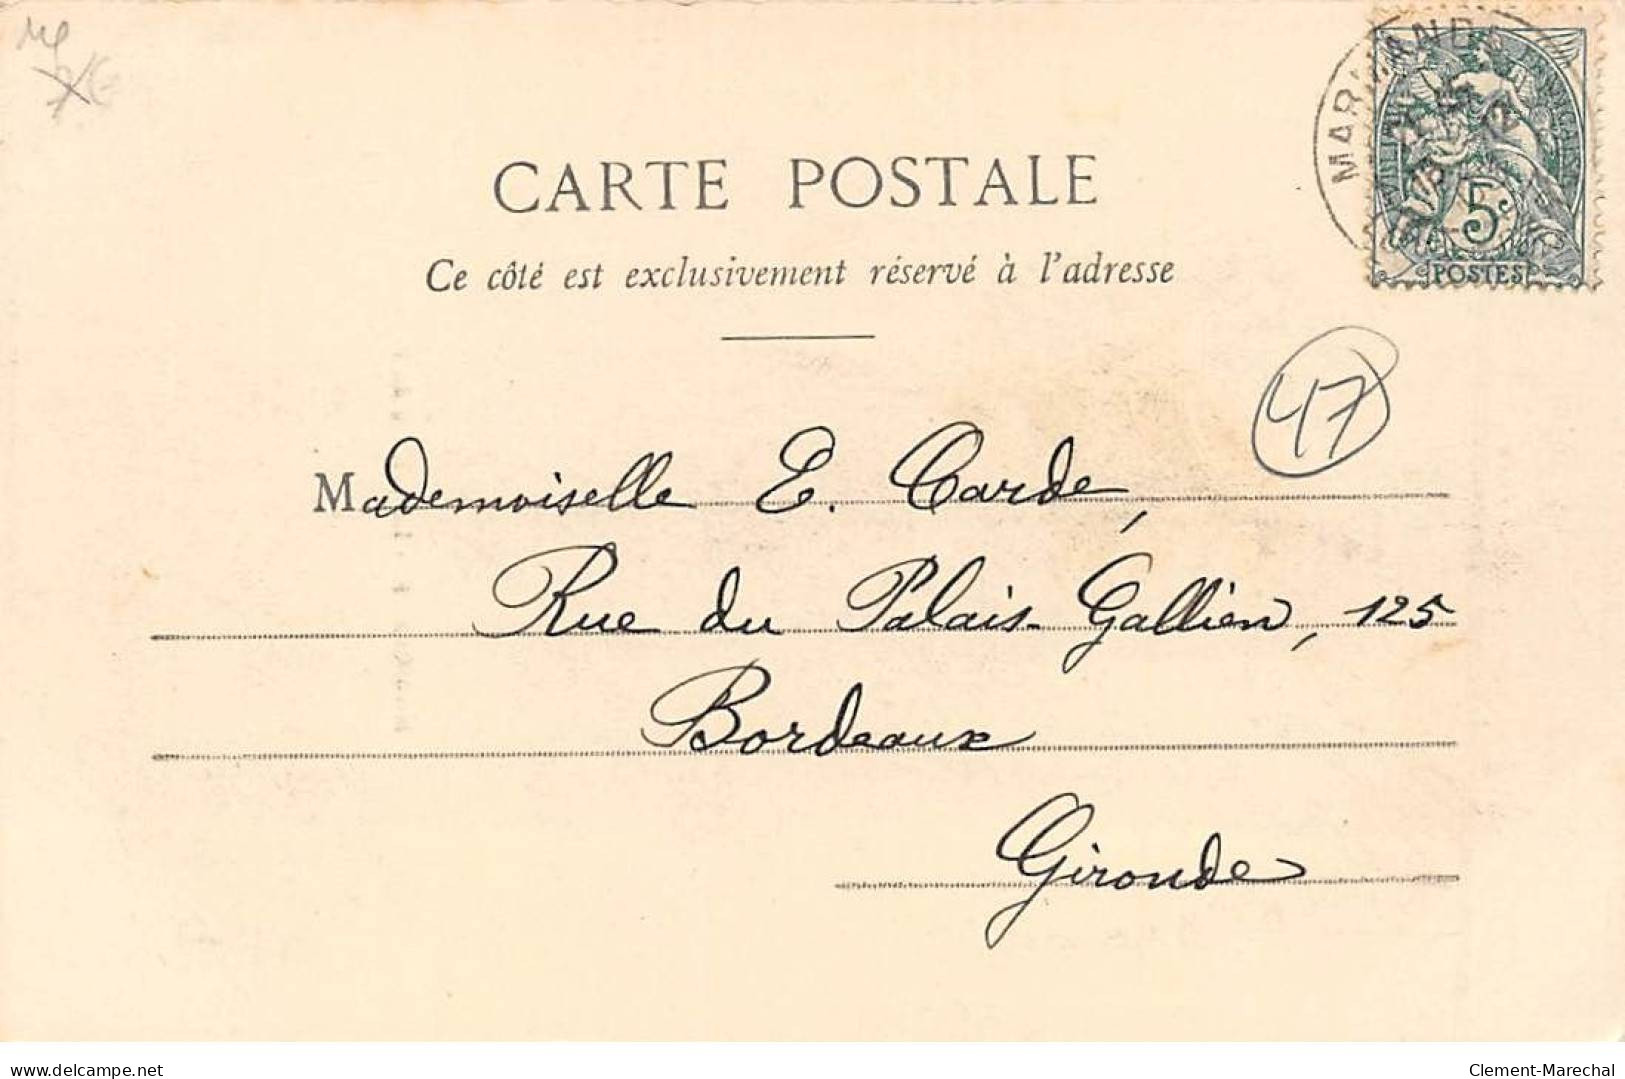 MARMANDE
5c
POSTES
CARTE POSTALE
Ce côté est exclusivement réservé à l'adresse
47
Mademoiselle E. Carde,
Rue du Palais-Gallien, 125
Bordeaux
Gironde
www.delcampe.net
Clement-Marechal